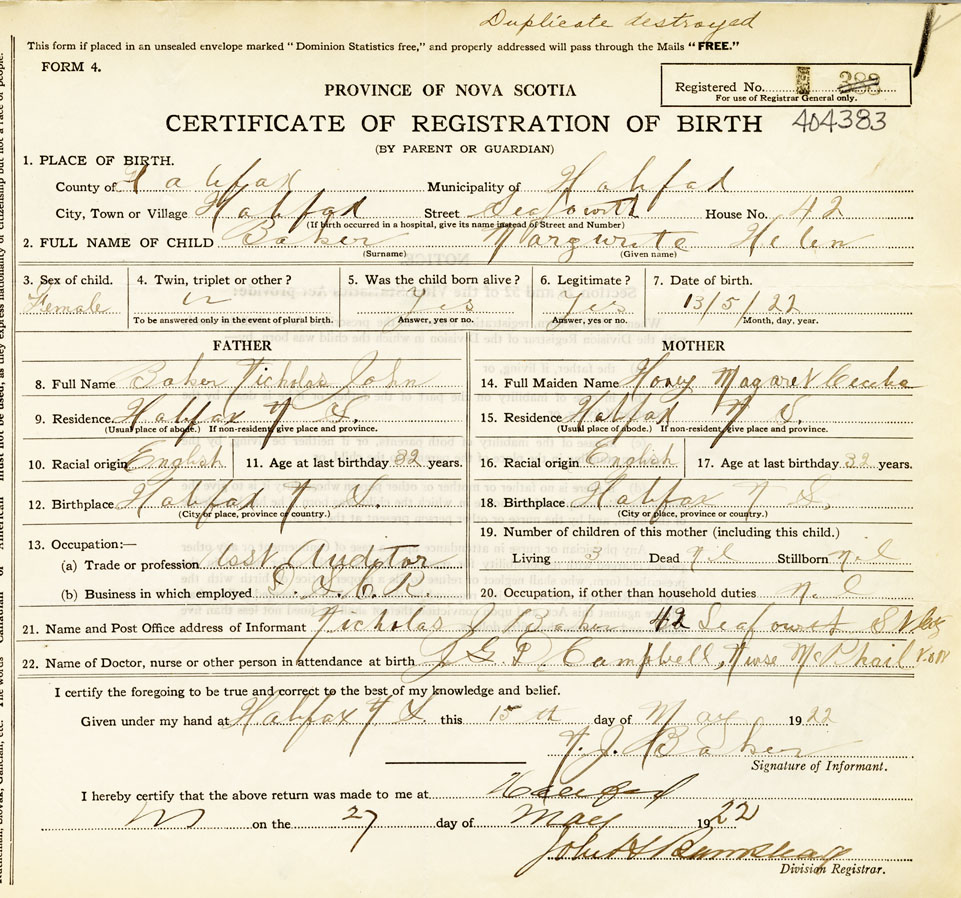 Duplicate destroyed
This form if placed in an unsealed envelope marked "Dominion Statistics free," and properly addressed will pass through the Mails "FREE."
FORM 4.
Registered No. 388
For use of Registrar General only.
PROVINCE OF NOVA SCOTIA
CERTIFICATE OF REGISTRATION OF BIRTH 404383
(BY PARENT OR GUARDIAN)
1. PLACE OF BIRTH.
County of Halifax Municipality of Halifax
City, Town or Village Halifax Street Seaforth House No. 42
(If birth occurred in a hospital, give its name instead of Street and Number)
2. FULL NAME OF CHILD Baker Margurite Helen
(Surname) (Given name)
3. Sex of child. 4. Twin, triplet or other? 5. Was the child born alive? 6. Legitimate? 7. Date of birth.
Female Yes Yes 13/5/22
To be answered only in the event of plural birth. Answer, yes or no. Answer, yes or no. Month, day, year.
FATHER MOTHER
8. Full Name Baker Nicholas John 14. Full Maiden Name Magaret Cecelia
9. Residence Halifax N S. 15. Residence Halifax N S.
(Usual place of abode.) If non-resident, give place and province. (Usual place of abode.) If non-resident, give place and province.
10. Racial origin English 11. Age at last birthday 32 years. 16. Racial origin English 17. Age at last birthday 32 years.
12. Birthplace Halifax N S. 18. Birthplace Halifax N S.
(City or place, province or country.) (City or place, province or country.)
13. Occupation:— 19. Number of children of this mother (including this child.)
(a) Trade or profession Asst. Auditor Living 3 Dead Nil Stillborn Nil
(b) Business in which employed 20. Occupation, if other than household duties Nil
21. Name and Post Office address of Informant Nicholas J Baker 42 Seafourth St
22. Name of Doctor, nurse or other person in attendance at birth Campbell, Nurse McPhail V.O.N
I certify the foregoing to be true and correct to the best of my knowledge and belief.
Given under my hand at Halifax N S. this 15th day of May 1922
N. J. Baker
Signature of Informant.
I hereby certify that the above return was made to me at Halifax
on the 27 day of May 1922
John
Division Registrar.